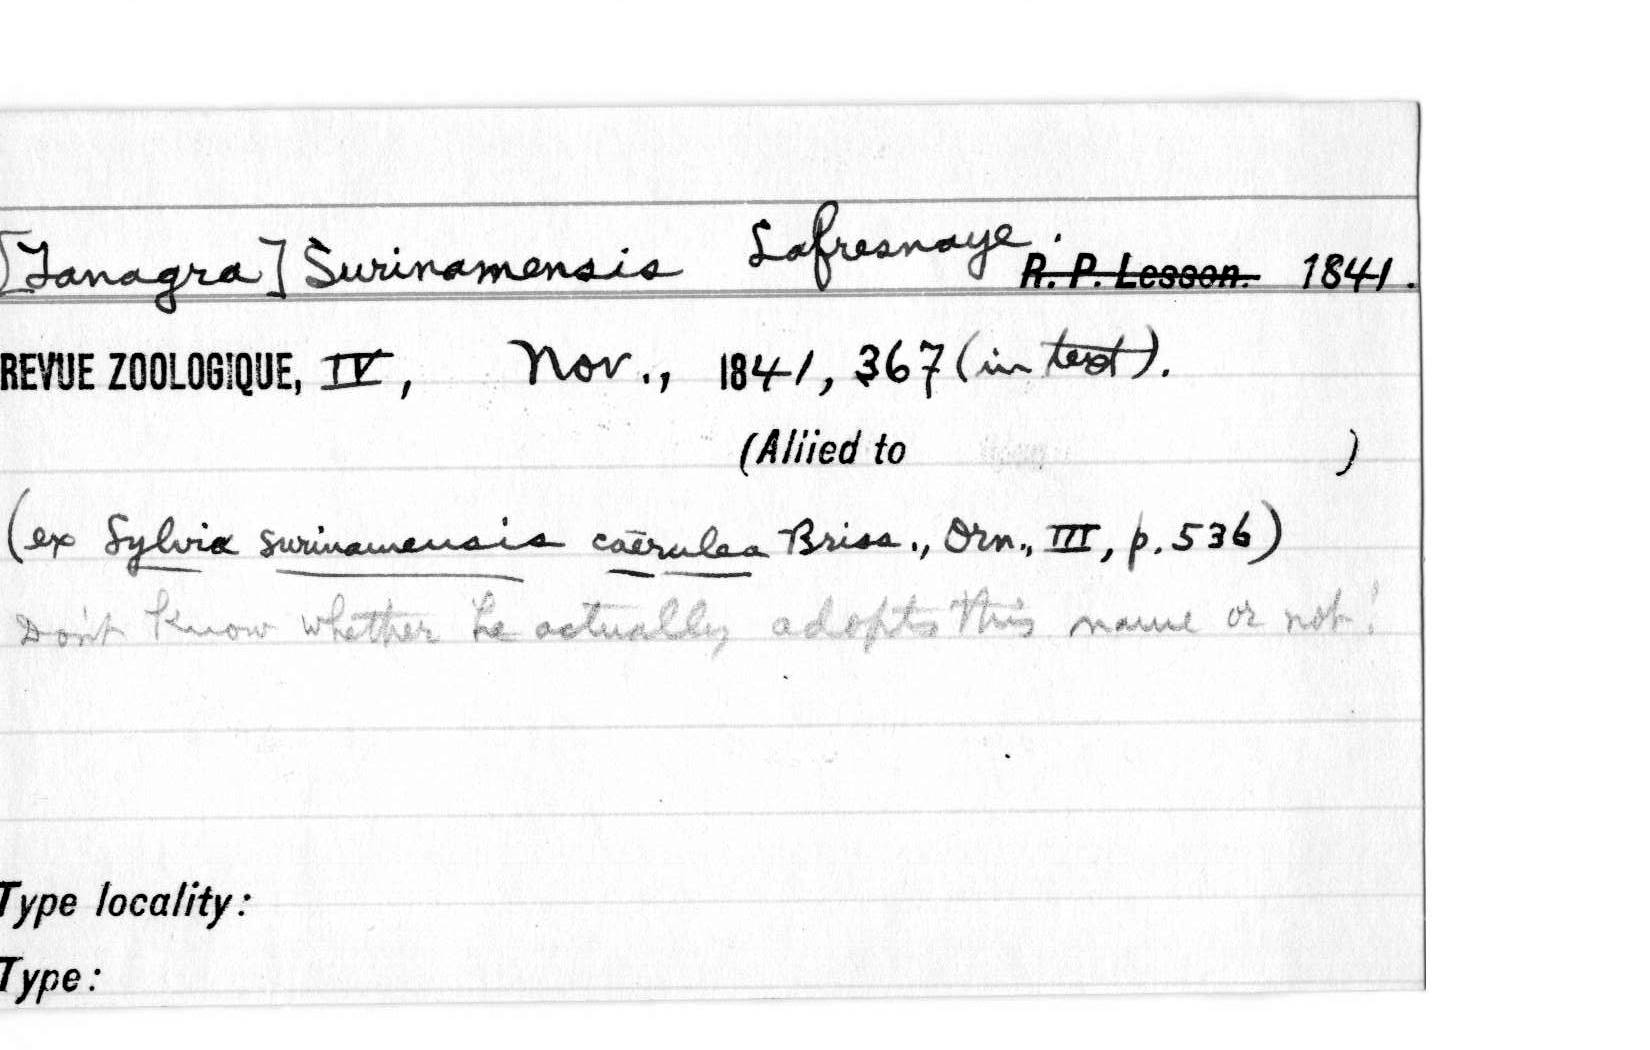 [Tanagra] Surinamensis Lafresnaye. R. P. Lesson. 1841.
REVUE ZOOLOGIQUE, IV, Nov., 1841, 367 (in text).
(Allied to )
(ex Sylvia surinamensis caerulea Briss., Orn., III, p. 536)
Don't know whether he actually adopts this name or not!
Type locality:
Type: